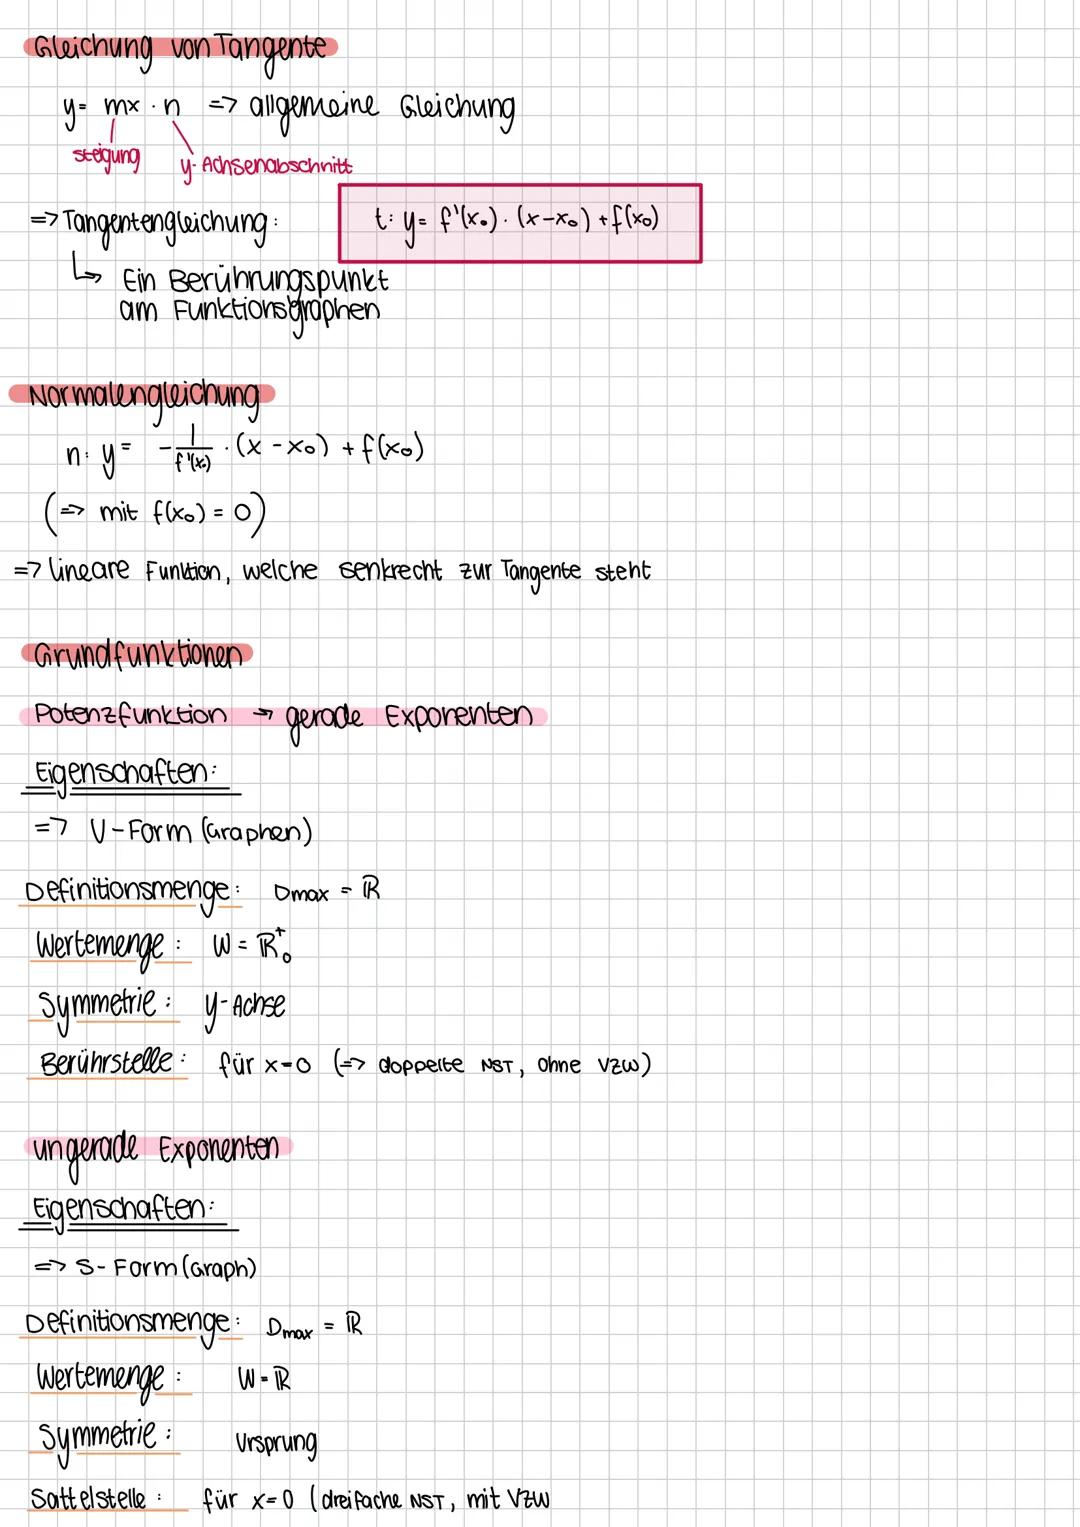 Gleichung von Tangente
y= mx · n => allgemeine Gleichung
steigung y-Achsenabschnitt
=> Tangentengleichung: t: y= f'(x₀) · (x-x₀) + f(x₀)
↳ Ein Berührungspunkt
am Funktionsgraphen
Normalengleichung
n: y= -1/f'(x₀) · (x-x₀) + f(x₀)
(=> mit f(x₀) = 0)
=> lineare Funktion, welche senkrecht zur Tangente steht
Grundfunktionen
Potenzfunktion → gerade Exponenten
Eigenschaften:
=> U-Form (Graphen)
Definitionsmenge: Dmax = ℝ
Wertemenge: W = ℝ₀⁺
Symmetrie: y-Achse
Berührstelle: für x=0 (=> doppelte NST, ohne VZW)
ungerade Exponenten
Eigenschaften:
=> S-Form (Graph)
Definitionsmenge: Dmax = ℝ
Wertemenge: W = ℝ
Symmetrie: Ursprung
Sattelstelle: für x=0 (dreifache NST, mit VZW